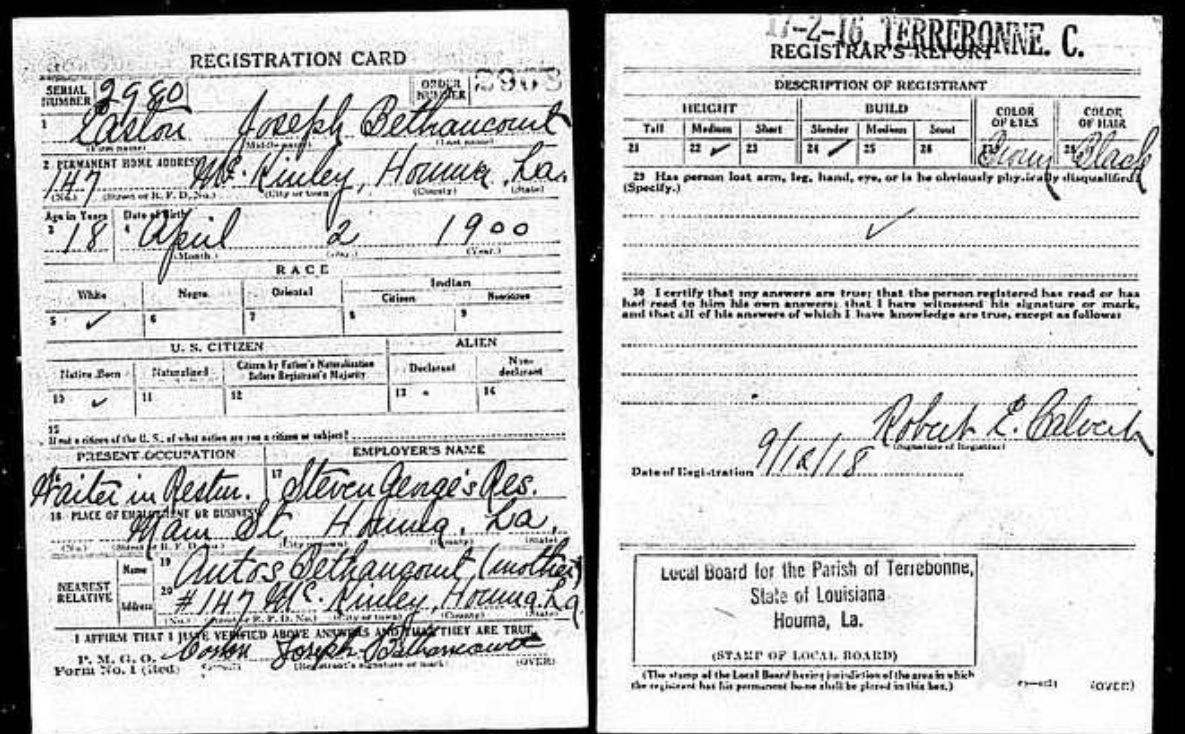 REGISTRATION CARD
SERIAL NUMBER 2980 ORDER NUMBER 2903
1 Joseph Bethancourt
(First name) (Middle name) (Last name)
2 PERMANENT HOME ADDRESS
147 Mc. Kinley, Houma, La.
(No.) (Street or R. F. D. No.) (City or town) (County) (State)
Age in Years Date of Birth
3 18 4 April 2 1900
(Month.) (Day.) (Year.)
RACE
White Negro Oriental Indian
Citizen Noncitizen
5 ✓ 6 7 8 9
U. S. CITIZEN ALIEN
Native Born Naturalized Citizen by Father's Naturalization Before Registrant's Majority Declarant Non-declarant
10 ✓ 11 12 13 14
15
If not a citizen of the U. S., of what nation are you a citizen or subject?
PRESENT OCCUPATION EMPLOYER'S NAME
16 Waiter in Restur. 17 Steven George's Res.
18 PLACE OF EMPLOYMENT OR BUSINESS
Main St. Houma, La.
(No.) (Street or R. F. D. No.) (City or town) (County) (State)
NEAREST RELATIVE
Name 19 Bethancourt (mother)
Address 20 #147 Mc. Kinley, Houma, La
(No.) (Street or R. F. D. No.) (City or town) (County) (State)
I AFFIRM THAT I HAVE VERIFIED ABOVE ANSWERS AND THAT THEY ARE TRUE
P. M. G. O.
Form No. 1 (Red) Joseph Bethancourt
(Registrant's signature or mark) (OVER)
17-2-16 TERREBONNE. C.
REGISTRAR'S REPORT
DESCRIPTION OF REGISTRANT
HEIGHT BUILD COLOR OF EYES COLOR OF HAIR
Tall Medium Short Slender Medium Stout
21 22 ✓ 23 24 ✓ 25 26 27 Brown 28 Black
29 Has person lost arm, leg, hand, eye, or is he obviously physically disqualified?
(Specify.)
✓
30 I certify that my answers are true; that the person registered has read or has
had read to him his own answers; that I have witnessed his signature or mark,
and that all of his answers of which I have knowledge are true, except as follows:
Robert E. Calvert
(Signature of Registrar)
Date of Registration 9/12/18
Local Board for the Parish of Terrebonne,
State of Louisiana
Houma, La.
(STAMP OF LOCAL BOARD)
(The stamp of the Local Board having jurisdiction of the area in which
the registrant has his permanent home shall be placed in this box.)
(OVER)